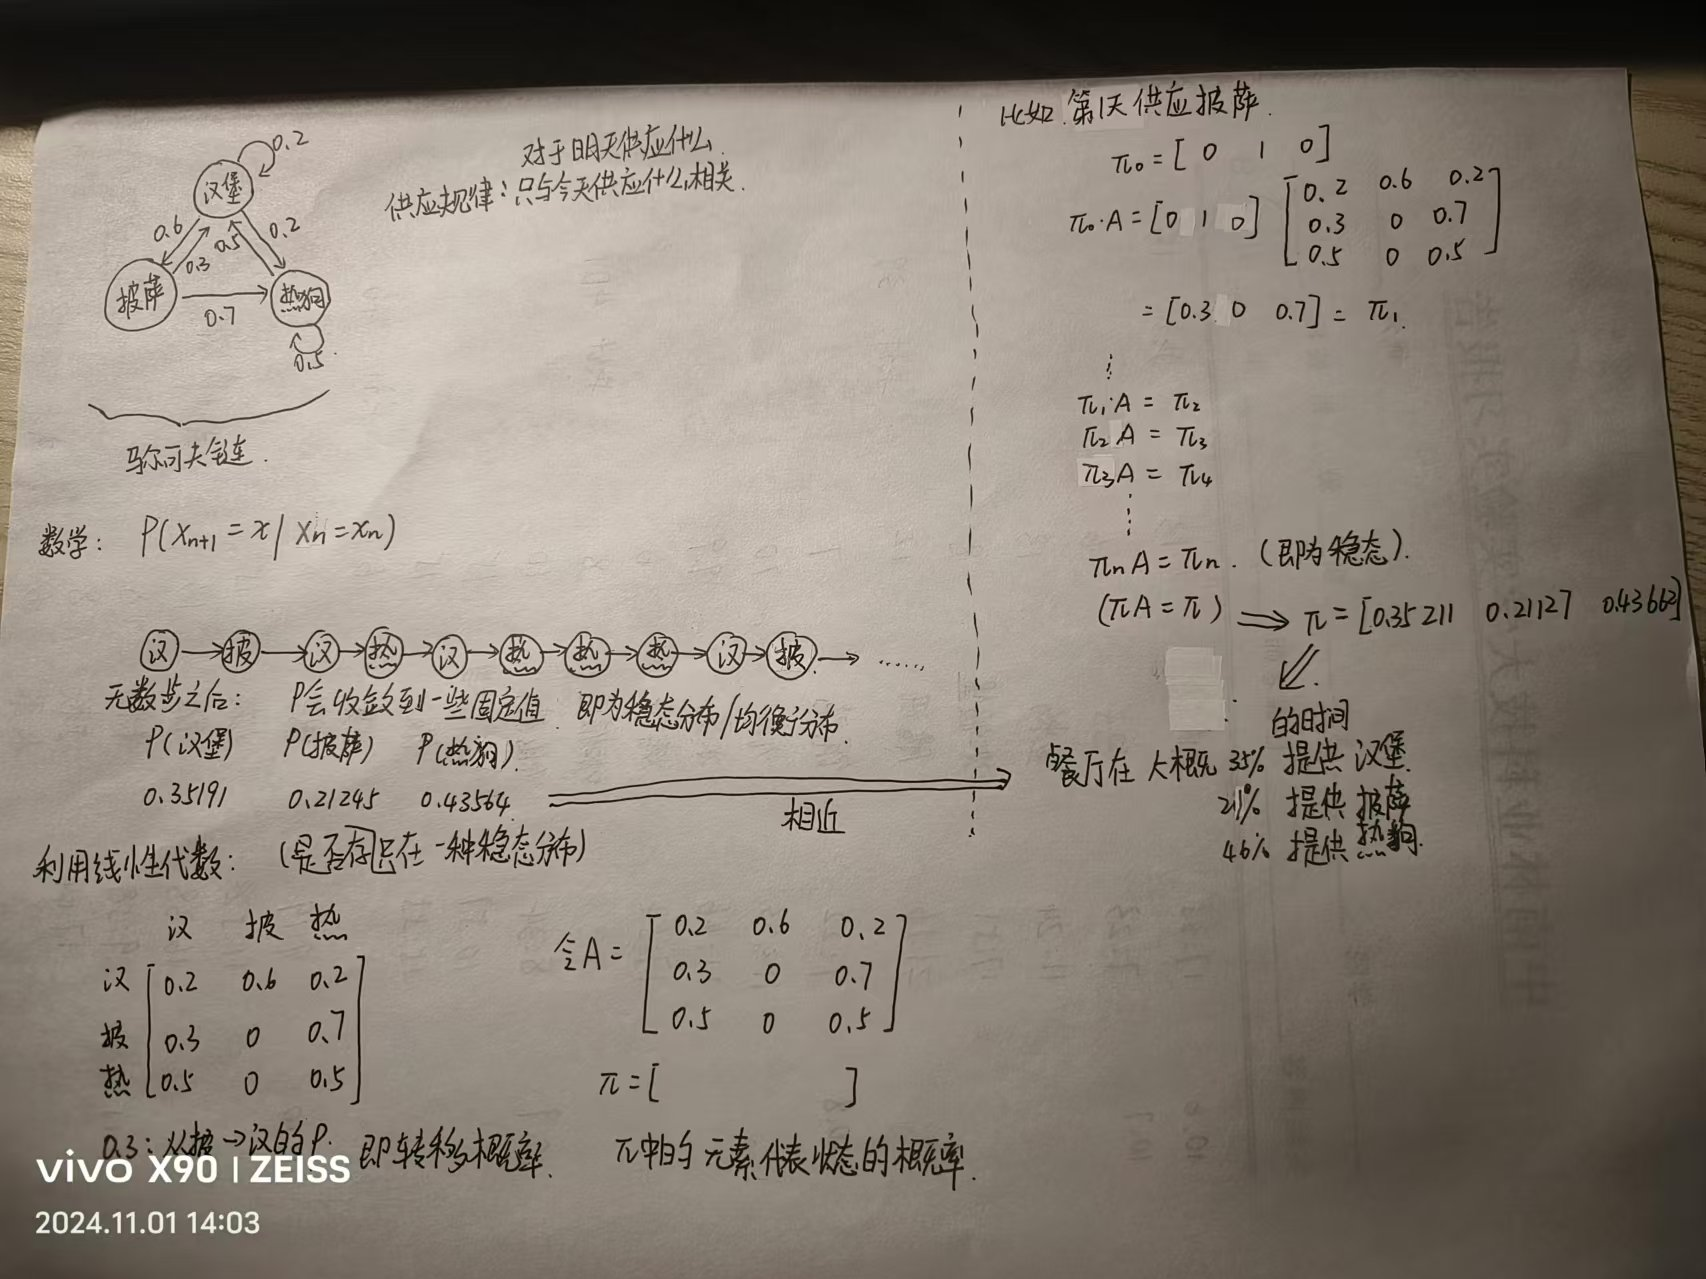 0.2
汉堡
0.6
0.3
0.5
0.2
披萨
热狗
0.7
0.5
马尔可夫链.
对于明天供应什么
供应规律：只与今天供应什么相关.
数学: P(Xn+1 = x | Xn = xn)
汉 → 披 → 汉 → 热 → 汉 → 热 → 热 → 热 → 汉 → 披 → ……
无数步之后: P会收敛到一些固定值 即为稳态分布/均衡分布.
P(汉堡) P(披萨) P(热狗).
0.35191 0.21245 0.43564
相近
利用线性代数: (是否存只在一种稳态分布)
汉 披 热
汉 0.2 0.6 0.2
披 0.3 0 0.7
热 0.5 0 0.5
0.3: 从披→汉的P. 即转移概率.
令A = [0.2 0.6 0.2
0.3 0 0.7
0.5 0 0.5]
π = [ ]
π中的元素代表状态的概率.
比如 第1天供应披萨.
π0 = [0 1 0]
π0·A = [0 1 0] [0.2 0.6 0.2
0.3 0 0.7
0.5 0 0.5]
= [0.3 0 0.7] = π1.
⋮
π1·A = π2
π2 A = π3
π3 A = π4
⋮
πn A = πn. (即为稳态).
(πA = π) ⇒ π = [0.35211 0.21127 0.43662]
的时间
餐厅在大概 35% 提供 汉堡.
21% 提供 披萨
46% 提供 热狗.
vivo X90 | ZEISS
2024.11.01 14:03